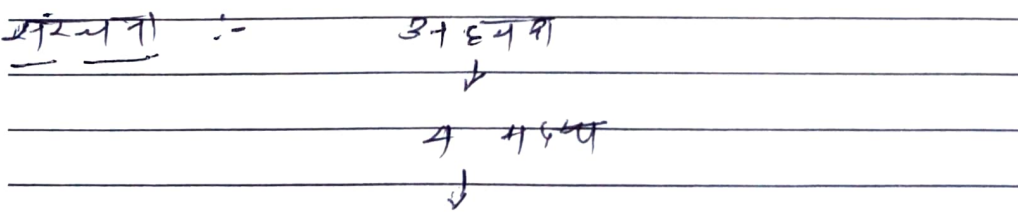 संरचना :- अध्यक्ष
↓
4 सदस्य
↓